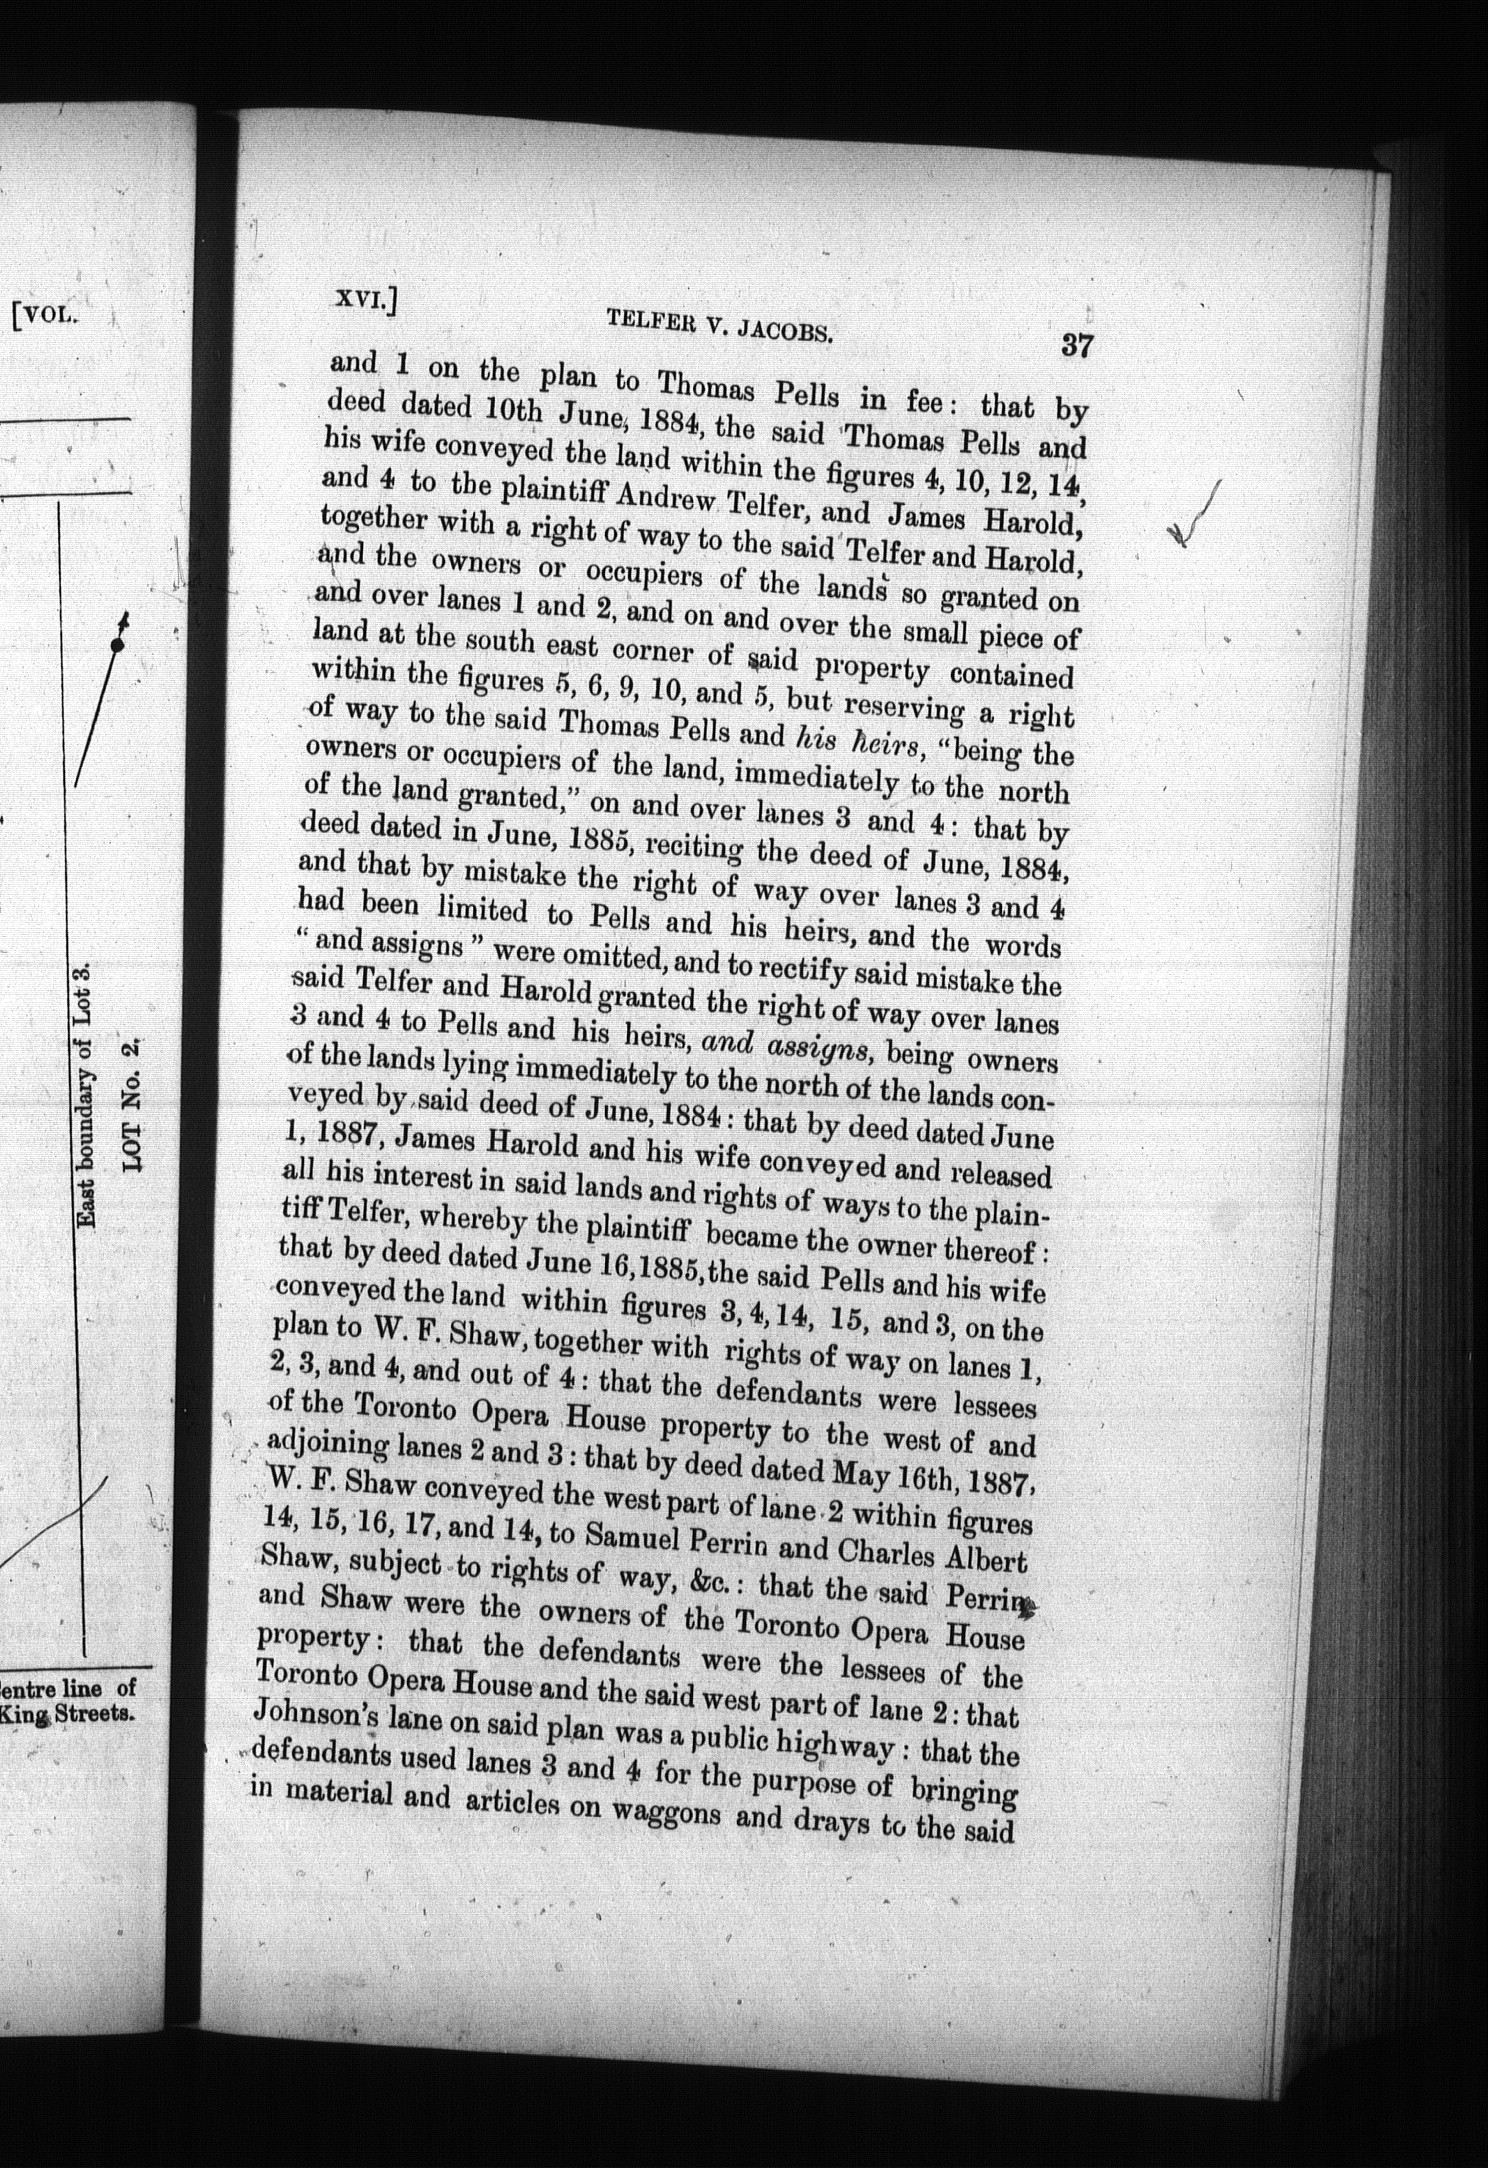 [VOL.
East boundary of Lot 3.
LOT No. 2.
entre line of
King Streets.
XVI.]
TELFER V. JACOBS.
37
and 1 on the plan to Thomas Pells in fee: that by
deed dated 10th June, 1884, the said Thomas Pells and
his wife conveyed the land within the figures 4, 10, 12, 14,
and 4 to the plaintiff Andrew Telfer, and James Harold,
together with a right of way to the said Telfer and Harold,
and the owners or occupiers of the lands so granted on
and over lanes 1 and 2, and on and over the small piece of
land at the south east corner of said property contained
within the figures 5, 6, 9, 10, and 5, but reserving a right
of way to the said Thomas Pells and his heirs, "being the
owners or occupiers of the land, immediately to the north
of the land granted," on and over lanes 3 and 4: that by
deed dated in June, 1885, reciting the deed of June, 1884,
and that by mistake the right of way over lanes 3 and 4
had been limited to Pells and his heirs, and the words
" and assigns " were omitted, and to rectify said mistake the
said Telfer and Harold granted the right of way over lanes
3 and 4 to Pells and his heirs, and assigns, being owners
of the lands lying immediately to the north of the lands con-
veyed by said deed of June, 1884: that by deed dated June
1, 1887, James Harold and his wife conveyed and released
all his interest in said lands and rights of ways to the plain-
tiff Telfer, whereby the plaintiff became the owner thereof:
that by deed dated June 16, 1885, the said Pells and his wife
conveyed the land within figures 3, 4, 14, 15, and 3, on the
plan to W. F. Shaw, together with rights of way on lanes 1,
2, 3, and 4, and out of 4: that the defendants were lessees
of the Toronto Opera House property to the west of and
adjoining lanes 2 and 3: that by deed dated May 16th, 1887,
W. F. Shaw conveyed the west part of lane 2 within figures
14, 15, 16, 17, and 14, to Samuel Perrin and Charles Albert
Shaw, subject to rights of way, &c.: that the said Perrin
and Shaw were the owners of the Toronto Opera House
property: that the defendants were the lessees of the
Toronto Opera House and the said west part of lane 2: that
Johnson's lane on said plan was a public highway: that the
defendants used lanes 3 and 4 for the purpose of bringing
in material and articles on waggons and drays to the said